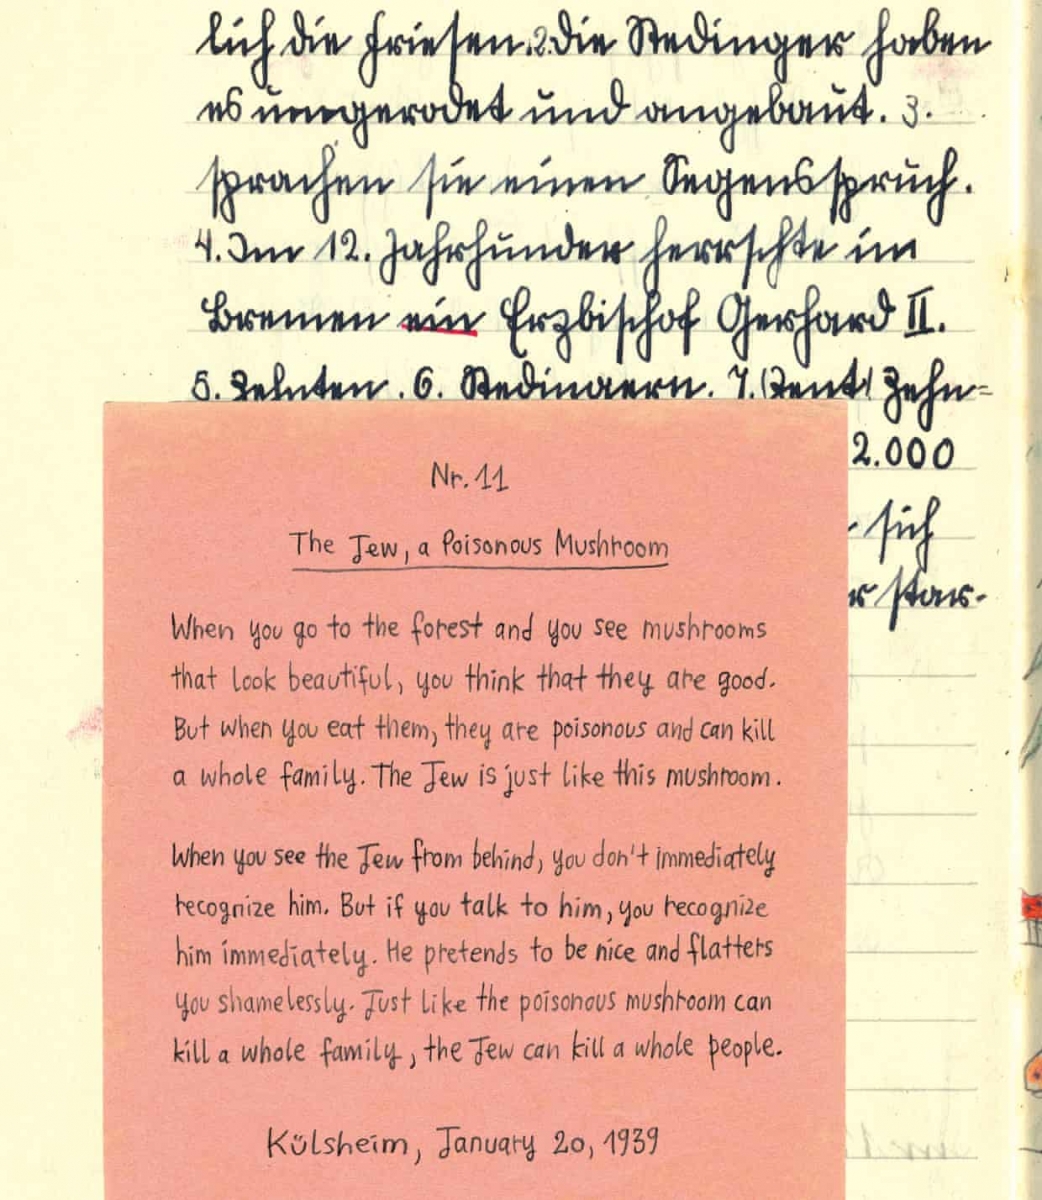 lich die Friesen. 2. die Stedinger haben
es umgerodet und angebaut. 3.
sprachen sie einen Segensspruch.
4. Im 12. Jahrhunder herrschte im
Bremen ein Erzbischof Gerhard II.
5. Zehnten. 6. Stedingern. 7. (Zent) Zehn=
2.000
sich
r star-
Nr. 11
The Jew, a Poisonous Mushroom
When you go to the forest and you see mushrooms
that look beautiful, you think that they are good.
But when you eat them, they are poisonous and can kill
a whole family. The Jew is just like this mushroom.
When you see the Jew from behind, you don't immediately
recognize him. But if you talk to him, you recognize
him immediately. He pretends to be nice and flatters
you shamelessly. Just like the poisonous mushroom can
kill a whole family, the Jew can kill a whole people.
Külsheim, January 20, 1939